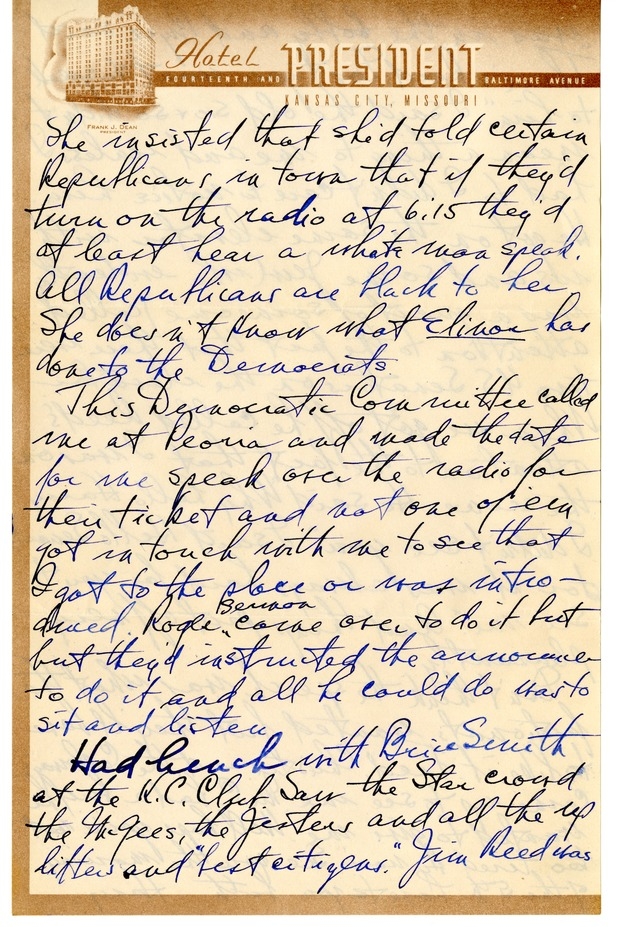 Hotel PRESIDENT
FOURTEENTH AND BALTIMORE AVENUE
KANSAS CITY, MISSOURI
FRANK J. DEAN
PRESIDENT
She insisted that she'd told certain
Republicans in town that if they'd
turn on the radio at 6:15 they'd
at least hear a white man speak.
All Republicans are black to her
She doesn't know what Elinor has
done to the Democrats.
This Democratic Committee called
me at Peoria and made the date
for me speak over the radio for
their ticket and not one of 'em
got in touch with me to see that
I got to the place or was intro-
duced. Roger Sermon came over to do it but
but they'd instructed the announcer
to do it and all he could do was to
sit and listen
Had lunch with Brice Smith
at the K.C. Club. Saw the Star crowd
the McGees, the Jesters and all the up
lifters and "best citizens." Jim Reed was